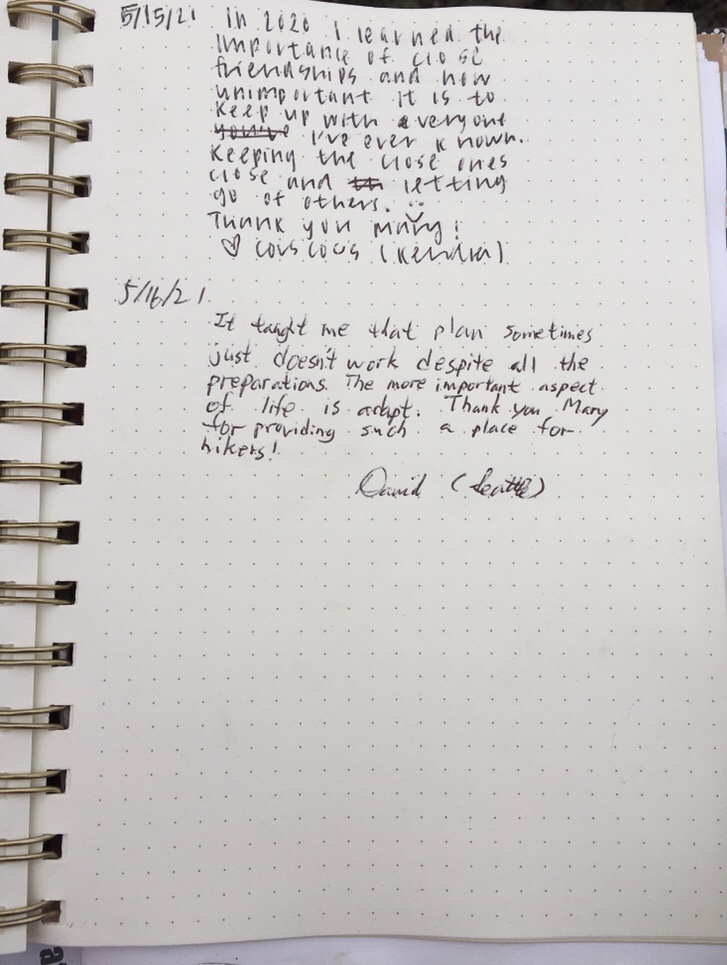 5/15/21 In 2020 I learned the
importance of close
friendships and how
unimportant it is to
keep up with everyone
you've I've ever known.
Keeping the close ones
close and letting
go of others. :)
Thank you Mary!
♡ Couscous (Kendra)
5/16/21
It taught me that plan sometimes
just doesn't work despite all the
preparations. The more important aspect
of life is adapt. Thank you Mary
for providing such a place for
hikers!
David (Seattle)